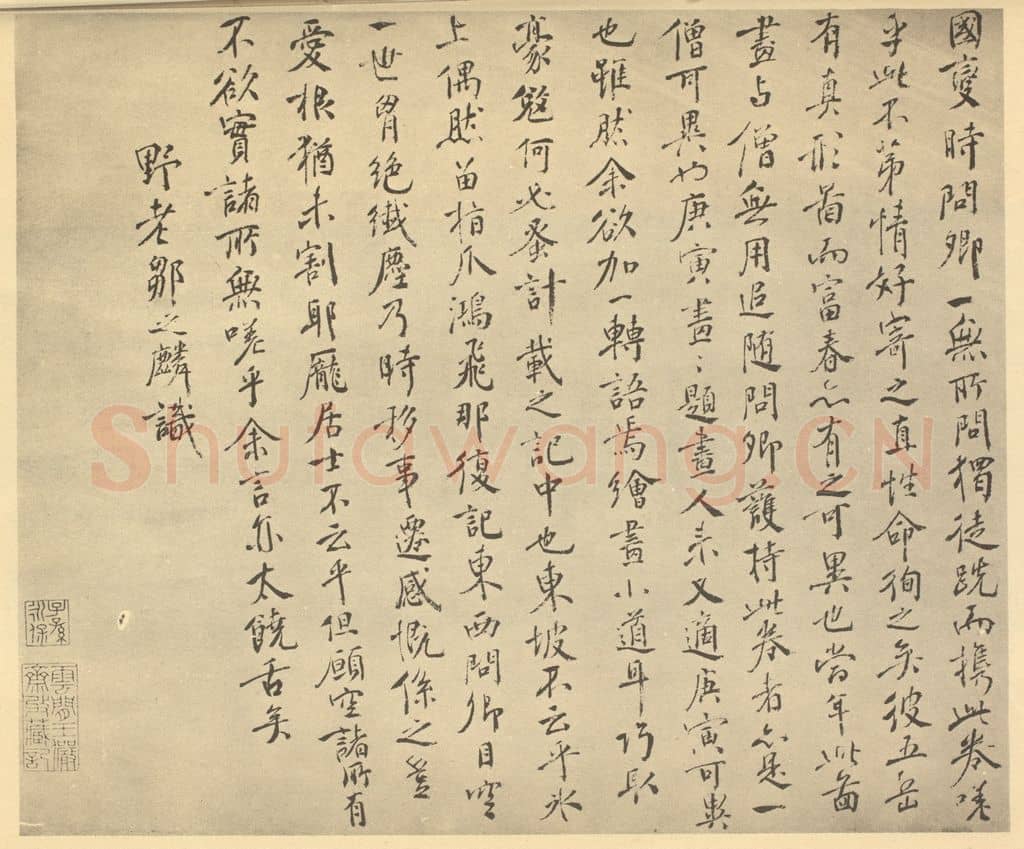 國變時問卿一無所問獨徒跣而攜此卷嗟
乎此不第情好寄之直性命徇之矣彼五岳
有真形啚而富春亦有之可異也當年此啚
畫与僧無用追随問卿護持此卷者亦是一
僧可異也庚寅畫〻題畫人来又適庚寅可異
也雖然余欲加一轉語焉繪畫小道耳巧取
豪敓何必蚤計載之記中也東坡不云乎氷
上偶然畱指爪鴻飛那復記東西問卿目空
一世胷絶纖塵乃時移事遷感慨係之豈
愛根猶未割耶龎居士不云乎但願空諸所有
不欲實諸所無嗟乎余言亦太饒舌矣
野老鄒之麟識
子孫永保
雲間王儼齋收藏記
Shufawang.CN